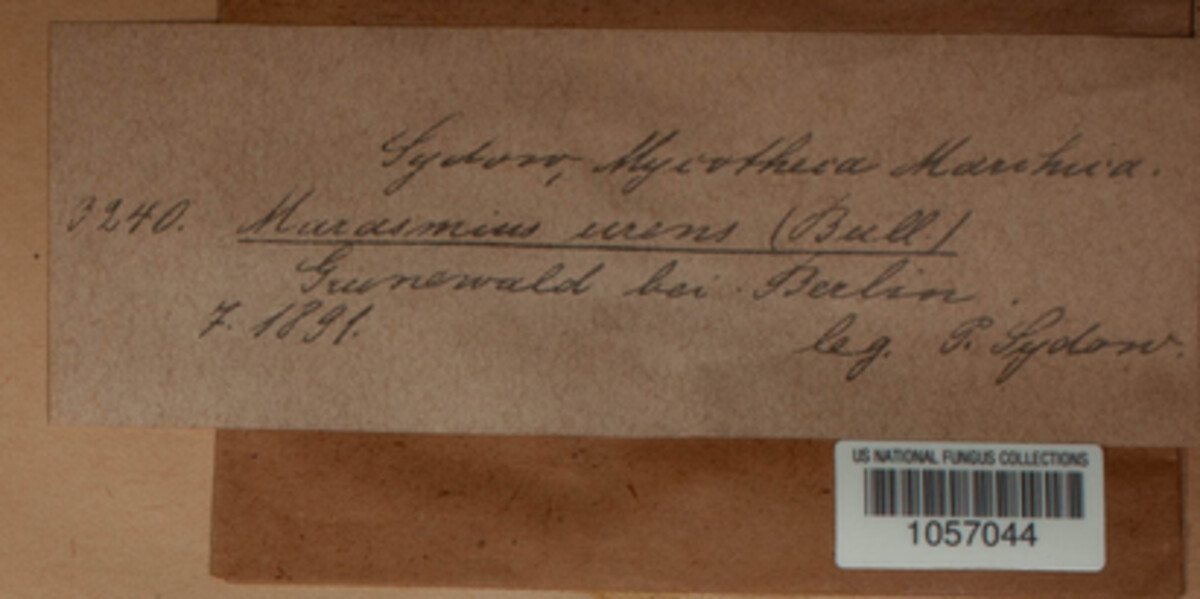 Sydow, Mycotheca Marchica.
3240. Marasmius urens (Bull)
Grunewald bei Berlin.
7. 1891.
leg. P. Sydow.
US NATIONAL FUNGUS COLLECTIONS
1057044